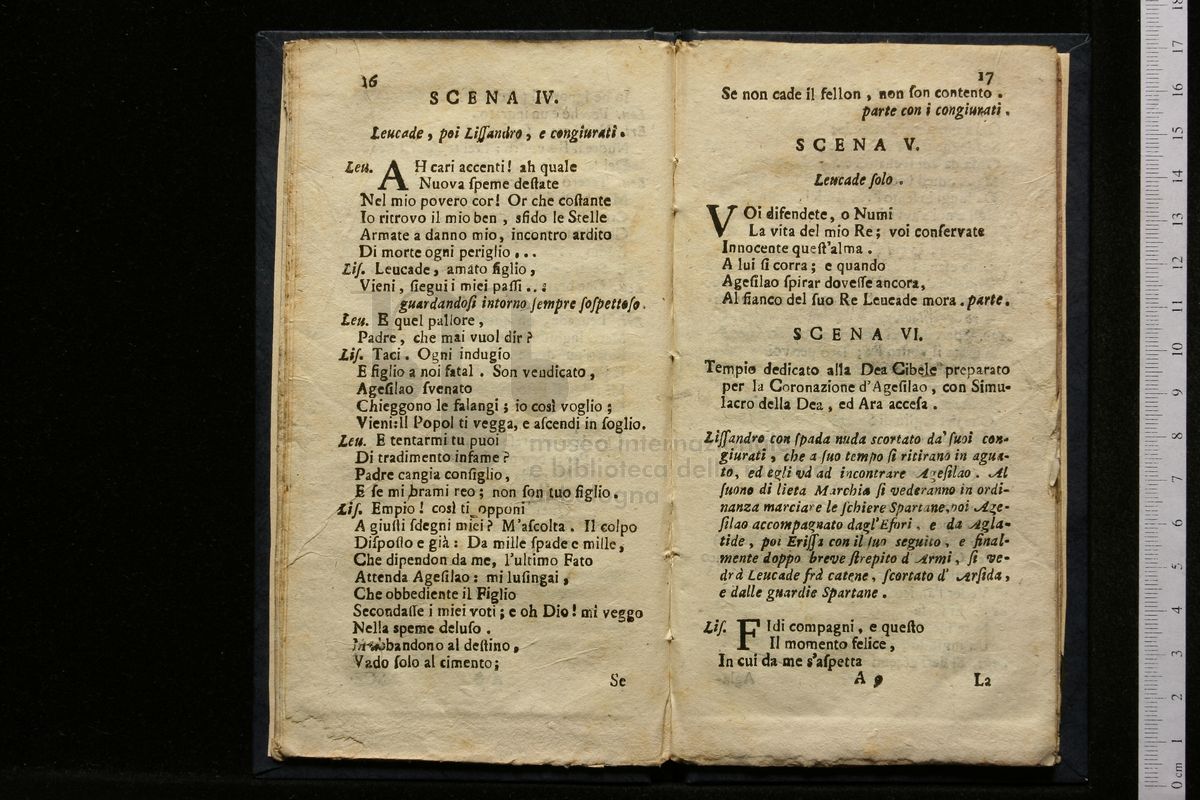 16
SCENA IV.
Leucade, poi Liſſandro, e congiurati.
Leu. AH cari accenti! ah quale
Nuova ſpeme deſtate
Nel mio povero cor! Or che coſtante
Io ritrovo il mio ben, sfido le Stelle
Armate a danno mio, incontro ardito
Di morte ogni periglio...
Liſ. Leucade, amato figlio,
Vieni, ſiegui i miei paſſi...
guardandoſi intorno ſempre ſoſpettoſo.
Leu. E quel pallore,
Padre, che mai vuol dir?
Liſ. Taci. Ogni indugio
E figlio a noi fatal. Son vendicato,
Ageſilao ſvenato
Chieggono le falangi; io così voglio;
Vieni: Il Popol ti vegga, e aſcendi in ſoglio.
Leu. E tentarmi tu puoi
Di tradimento infame?
Padre cangia conſiglio,
E ſe mi brami reo; non ſon tuo figlio.
Liſ. Empio! così ti opponi
A giuſti ſdegni miei? M'aſcolta. Il colpo
Diſpoſto e già: Da mille ſpade e mille,
Che dipendon da me, l'ultimo Fato
Attenda Ageſilao: mi luſingai,
Che obbediente il Figlio
Secondaſſe i miei voti; e oh Dio! mi veggo
Nella ſpeme deluſo.
al deſtino,
Vado ſolo al cimento;
Se
17
Se non cade il fellon, non ſon contento.
parte con i congiurati.
SCENA V.
Leucade ſolo.
VOi difendete, o Numi
La vita del mio Re; voi conſervate
Innocente queſt'alma.
A lui ſi corra; e quando
Ageſilao ſpirar doveſſe ancora,
Al fianco del ſuo Re Leucade mora. parte.
SCENA VI.
Tempio dedicato alla Dea Cibele preparato
per la Coronazione d'Ageſilao, con Simu-
lacro della Dea, ed Ara acceſa.
Liſſandro con ſpada nuda scortato da' ſuoi con-
giurati, che a ſuo tempo ſi ritirano in agua-
to, ed egli và ad incontrare Ageſilao. Al
ſuono di lieta Marchia ſi vederanno in ordi-
nanza marciare le ſchiere Spartane, poi Age-
ſilao accompagnato dagl'Efori, e da Agla-
tide, poi Eriſſa con il ſuo seguito, e final-
mente doppo breve ſtrepito d'Armi, ſi ve-
drà Leucade frà catene, ſcortato d'Arſida,
e dalle guardie Spartane.
Liſ. FIdi compagni, e queſto
Il momento felice,
In cui da me s'aſpetta
A 9
La
museo internaz
e biblioteca della